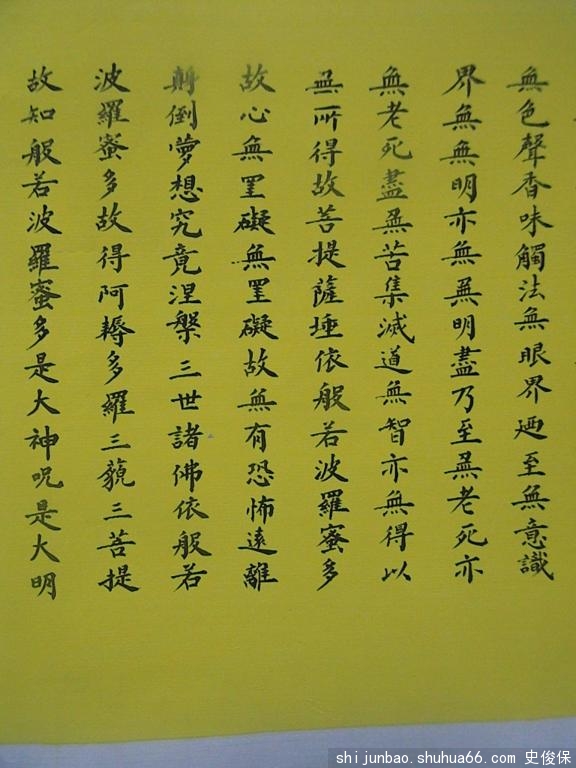 無色聲香味觸法無眼界廼至無意識
界無無明亦無無明盡乃至無老死亦
無老死盡無苦集滅道無智亦無得以
無所得故菩提薩埵依般若波羅蜜多
故心無罣礙無罣礙故無有恐怖遠離
顛倒夢想究竟涅槃三世諸佛依般若
波羅蜜多故得阿耨多羅三藐三菩提
故知般若波羅蜜多是大神呪是大明
shijunbao.shuhua66.com 史俊保